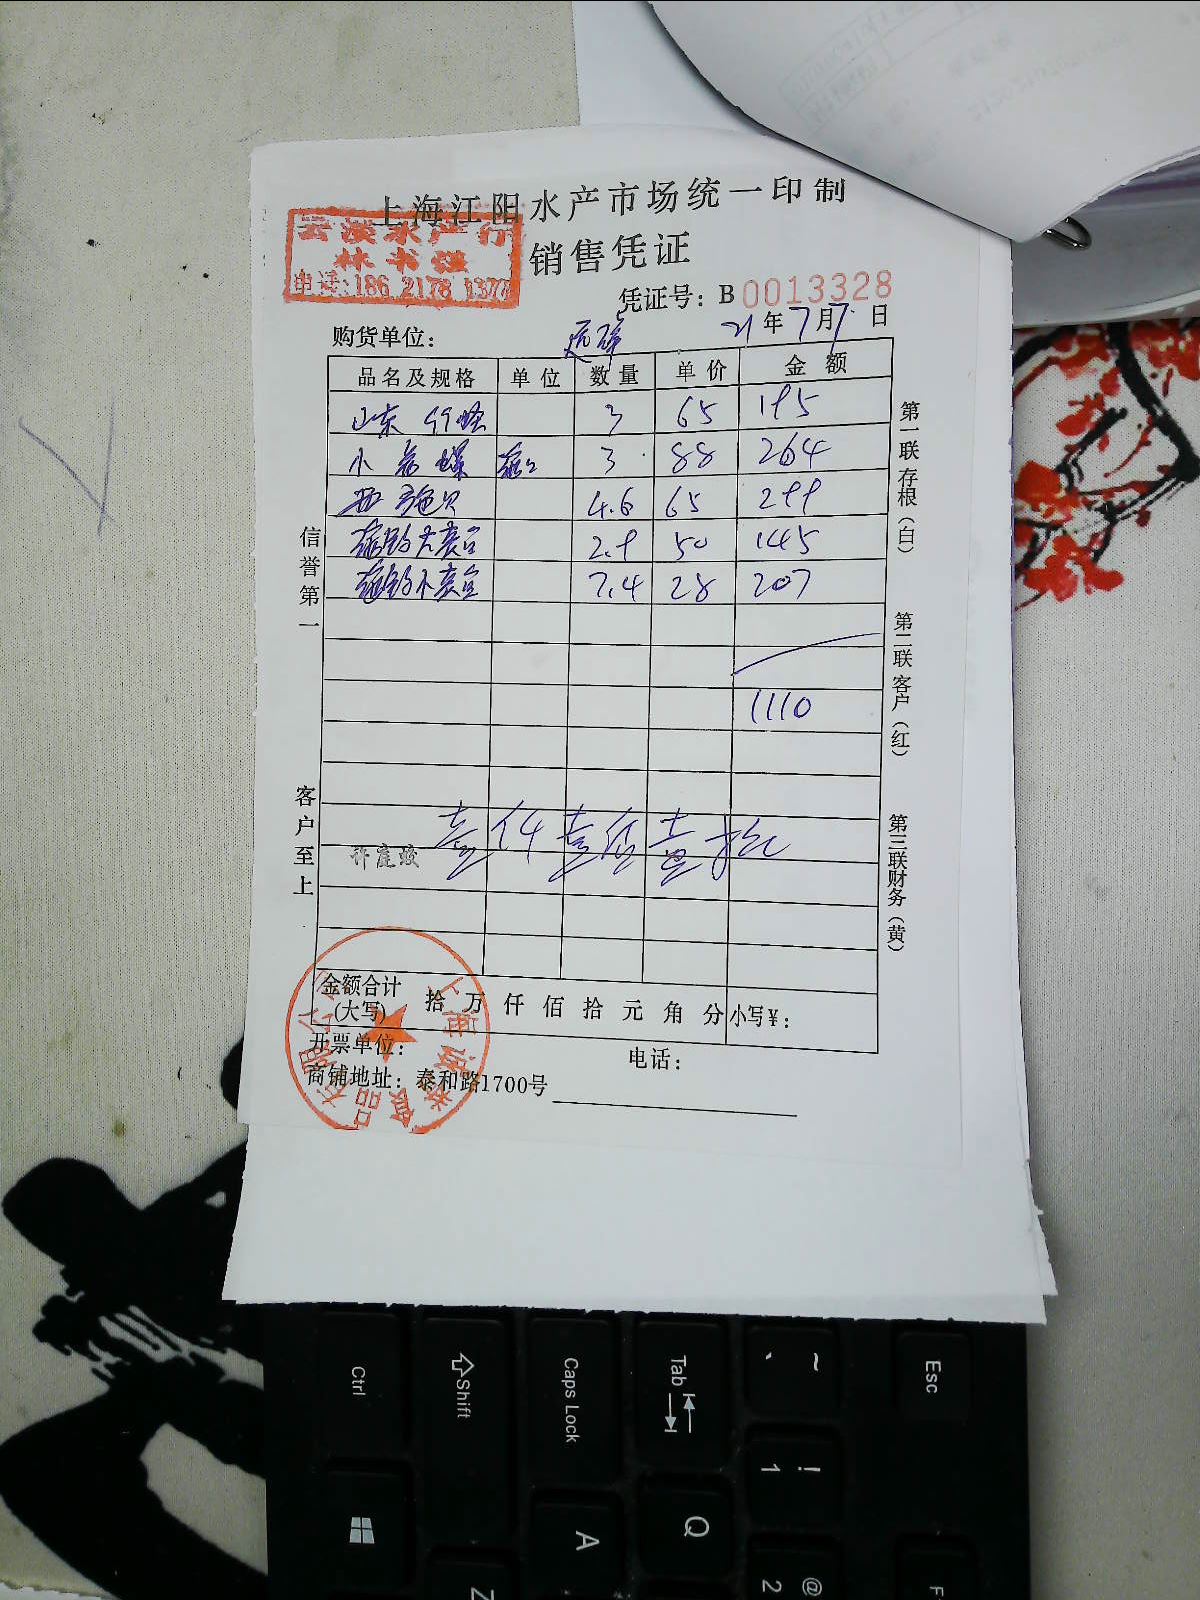 上海江阳水产市场统一印制
云溪水产行
林书强
电话:186 2178 1377
销售凭证
凭证号: B 0013328
购货单位:
21 年 7 月 7 日
品名及规格 单位 数量 单价 金额
山东 3 65 195
小 螺 3 88 264
4.6 65 299
2.9 50 145
7.4 28 207
1110
壹仟壹佰壹拾
许崖蛟
金额合计(大写) 拾 万 仟 佰 拾 元 角 分 小写¥:
开票单位: 电话:
商铺地址: 泰和路1700号
信誉第一
客户至上
第一联存根(白)
第二联客户(红)
第三联财务(黄)
Ctrl
Shift
Caps Lock
Tab
~
、
Esc
! 1
A
Q
@ 2
Z
F